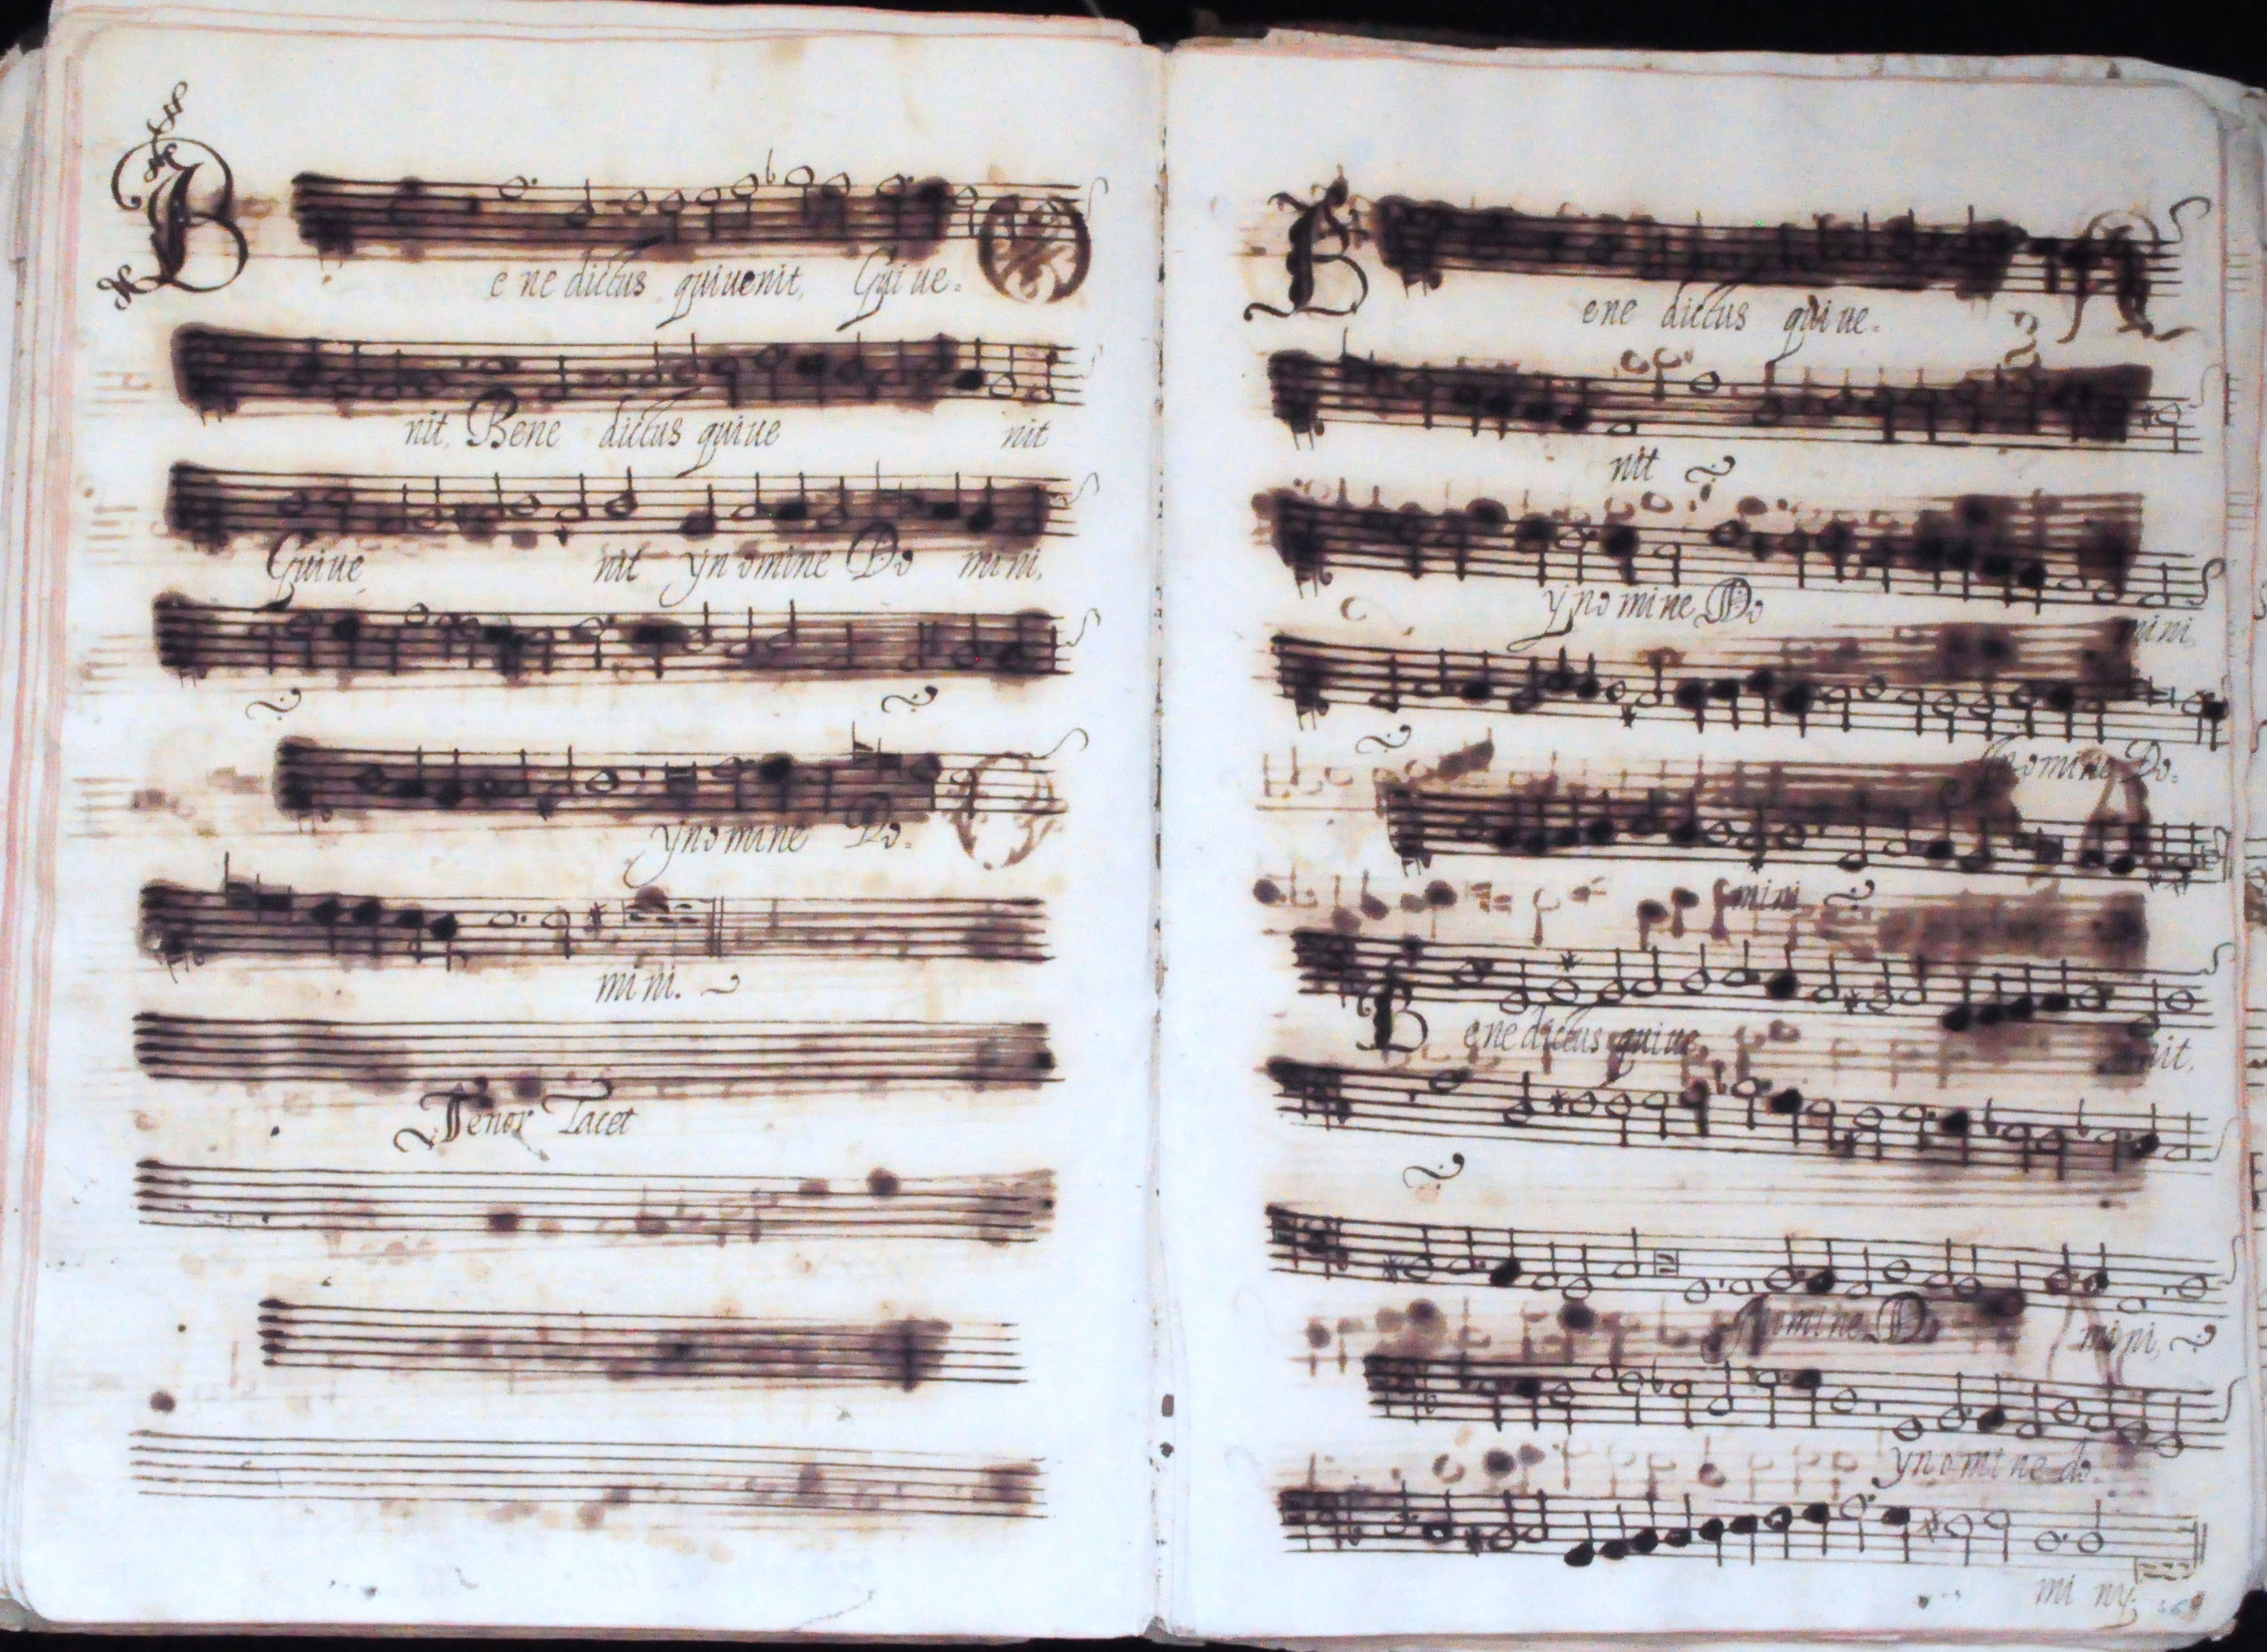 Bene dictus qui uenit, Qui ue=
nit, Bene dictus qui ue nit
Qui ue nit yn omine Do mi ni,
yno mine Do.
mi ni.
Tenor Tacet
Bene dictus qui ue.
nit
yno mi ne Do
mi ni,
yn omine Do=
mi ni
Bene dictus qui ue, nit,
ynomi ne Do mi ni,
yno mi ne do.
mi ny.